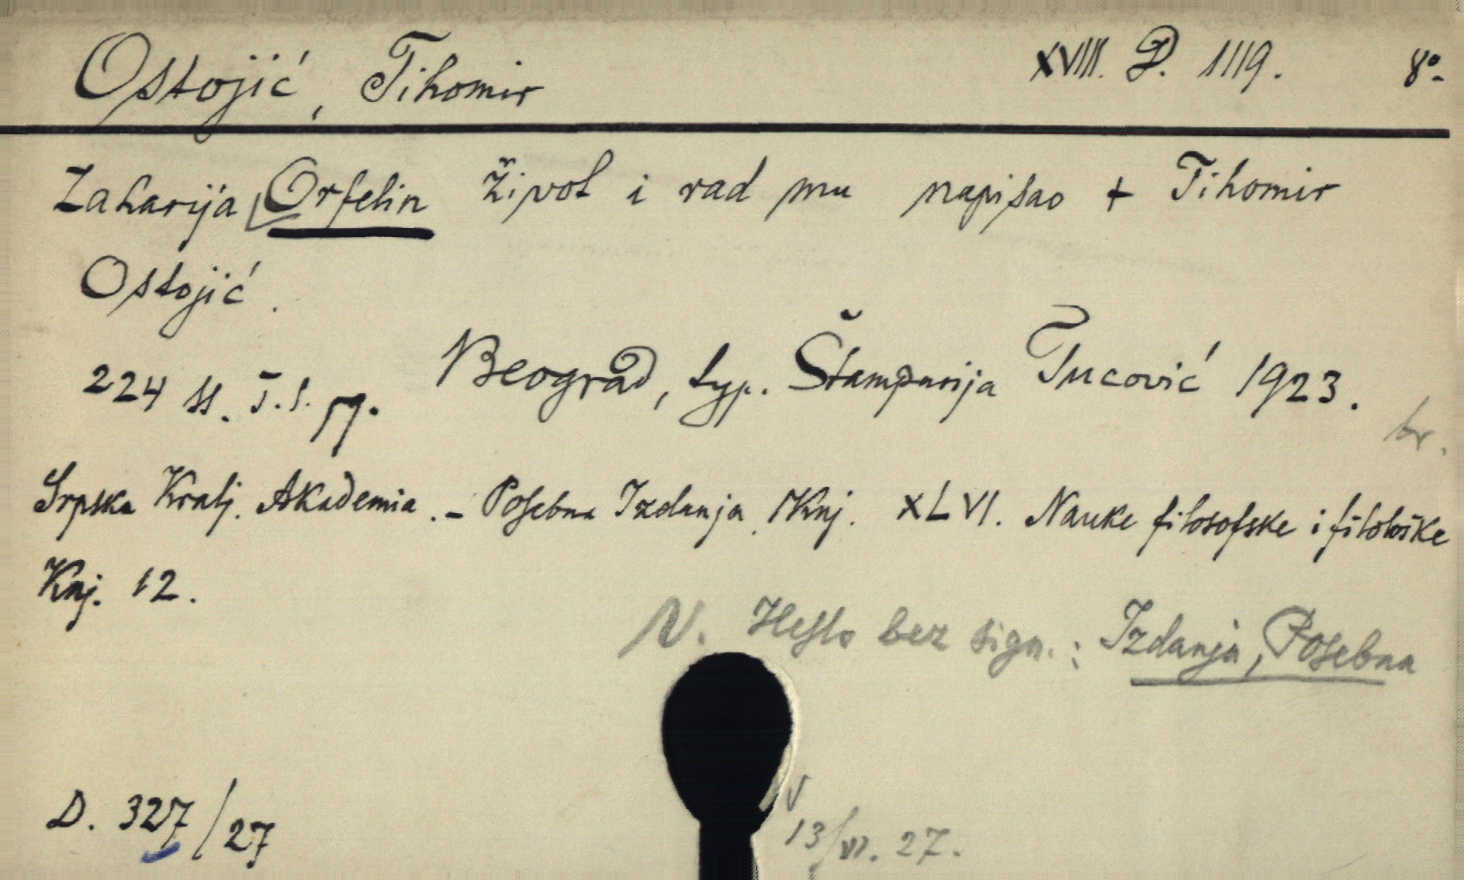 Ostojić, Tihomir XVIII. D. 1119. 8°.
Zaharija Orfelin Život i rad mu napisao + Tihomir
Ostojić.
224 ss. Beograd, typ. Štamparija Tucović 1923.
br.
Srpska Kralj. Akademia. - Posebna Izdanja Knj. XLVI. Nauke filosofske i filološke
Knj. 12.
N. Heslo bez sign.: Izdanja, Posebna
D. 327/27
13/VI. 27.